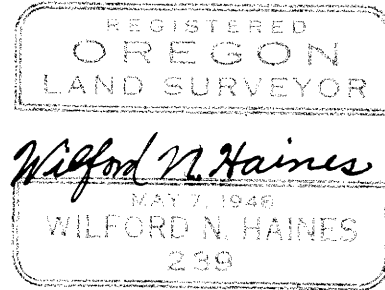 REGISTERED
OREGON
LAND SURVEYOR
Wilford N. Haines
MAY 7, 1946
WILFORD N. HAINES
239